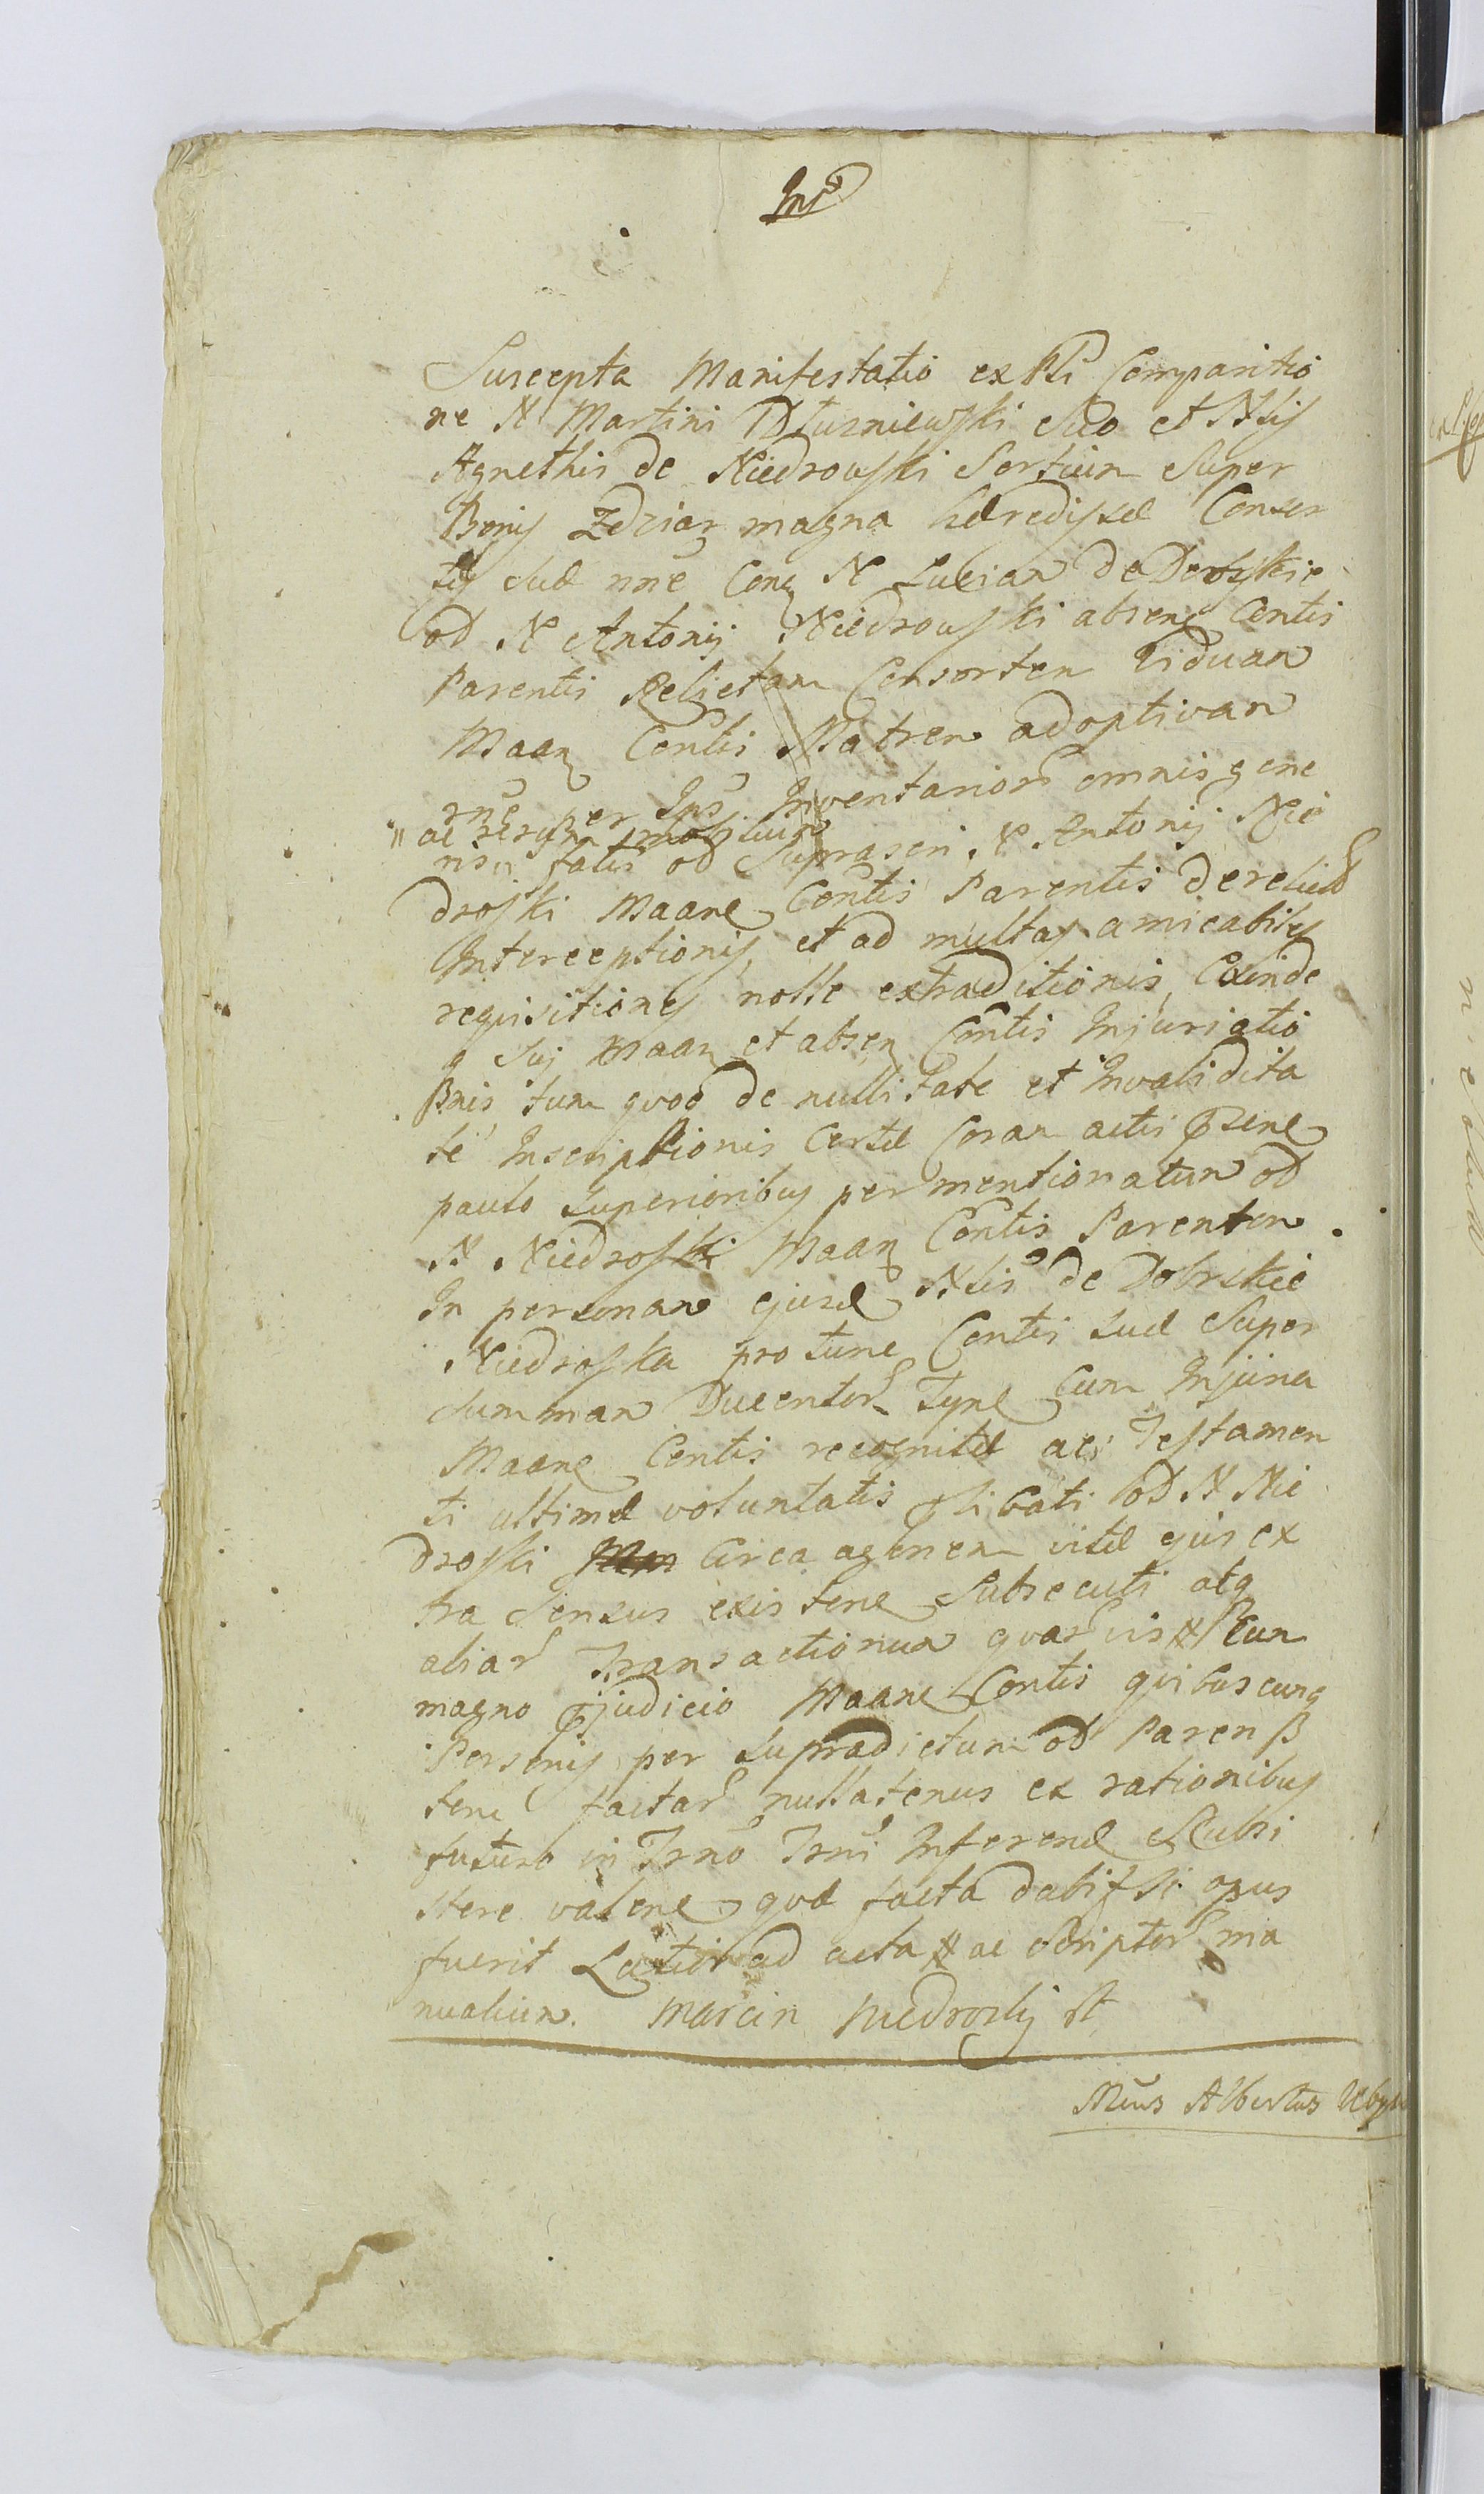 Suscepta Manifestatio ex Pti Comparitio
ne N Martini Dłuzniewski Suo et Nlis
Agnethis de Niedrowski Sortium Super
Bonis Zdziar magna hæredissæ Consor
tis Suæ nnē Conq N Lucian de Dobrskie
od N Antonij Niedrowski absenq Contis
Parentis Relictam Consorten Viduan
Maanq Contis Matren adoptivan
rnē per Ips Inventarior omnis gene
" ac rerum mobilium
ris " fatis od Suprascri N Antonij Nie
droski Maane Contis Parentis derelict
Interceptionis, et ad multas amicabiles
requisitiones nolle extraditionis, Exinde
q Sui Maanq et absenq Contis Injuriatio
Bnis tum quod de nullitate et Invalidita
te Inscriptionis Certæ Coran actis pñene
paulo Superioribus per mentionatum od
N Niedroski Maanq Contis Parenten
In personan ejusd Nlis de Dobrskie
Niedroska pro tunc Contis suæ Super
Summan Ducentor Tyne Cum Injuria
Maane Contis recognitæ aci Testamen
ti ultimæ voluntatis plibati od N Nie
droski Circa agonem vitæ ejus ex
tra Sensus existene Subsecuti atq
aliar Transactionum quarvis Cum
magno pjudicio Maane Contis quibuscunq
Personis per supradictum od Paren
tene factar nullatenus ex rationibus
futuro in Trno Trni Inferend Subsi
stere valene, quæ facta dabit Si opus
fuerit Latior ad acta ac Scriptor ma
nualium. Marcin Niedroski
Mcus Albertus